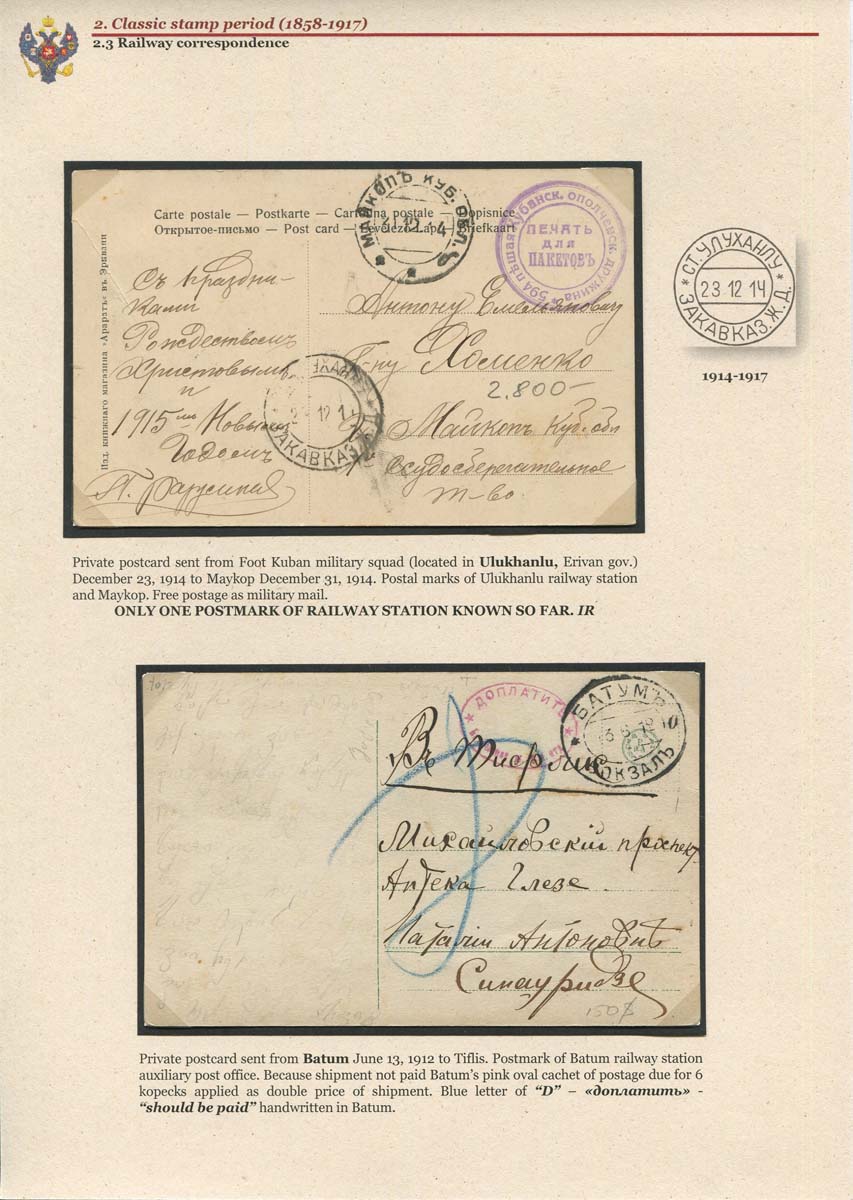 2. Classic stamp period (1858-1917)
2.3 Railway correspondence
МАЙКОПЪ КУБ. ОБЛ.
594 пѣшая Кубанск. ополченск. дружина
ПЕЧАТЬ
для
ПАКЕТОВЪ
Carte postale — Postkarte — Cartolina postale — Dopisnice
Открытое-письмо — Post card — Levelező-Lap — Briefkaart
Изд. книжнаго магазина «Араратъ» въ Эривани
Съ праздни-
ками
Рождествомъ
Христовымъ
и
1915 мъ Новымъ
Годомъ
Антону Емельяновичу
Г-ну Хоменко
2.800-
Майкопъ Куб. обл
Ссудосберегательное
т-во
ЗАКАВКАЗ
СТ. УЛУХАНЛУ
23 12 14
ЗАКАВКАЗ. Ж. Д.
1914-1917
Private postcard sent from Foot Kuban military squad (located in Ulukhanlu, Erivan gov.)
December 23, 1914 to Maykop December 31, 1914. Postal marks of Ulukhanlu railway station
and Maykop. Free postage as military mail.
ONLY ONE POSTMARK OF RAILWAY STATION KNOWN SO FAR. IR
ДОПЛАТИТЬ
БАТУМЪ
ВОКЗАЛЪ
Въ Тифлисъ
Михайловскій проспект
Аптека Глезе
Наталіи Антоновнѣ
Синауридзе
150$
Private postcard sent from Batum June 13, 1912 to Tiflis. Postmark of Batum railway station
auxiliary post office. Because shipment not paid Batum's pink oval cachet of postage due for 6
kopecks applied as double price of shipment. Blue letter of "D" – «доплатить» -
"should be paid" handwritten in Batum.